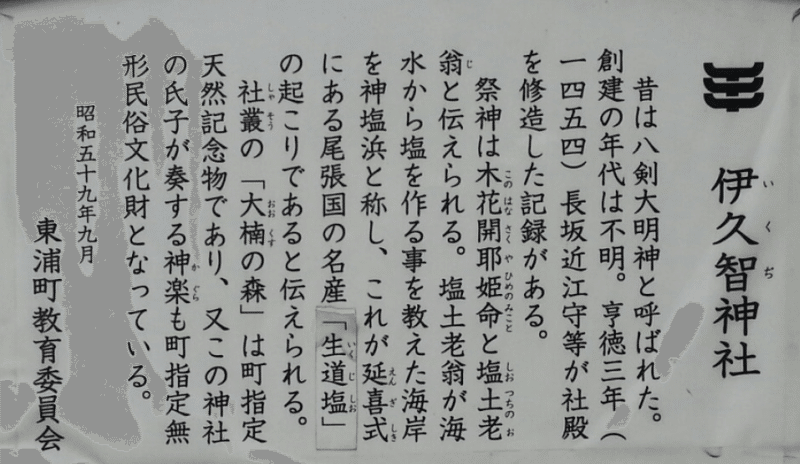 伊久智神社
昔は八剣大明神と呼ばれた。
創建の年代は不明。亨徳三年(
一四五四)長坂近江守等が社殿
を修造した記録がある。
祭神は木花開耶姫命と塩土老
翁と伝えられる。塩土老翁が海
水から塩を作る事を教えた海岸
を神塩浜と称し、これが延喜式
にある尾張国の名産「生道塩」
の起こりであると伝えられる。
社叢の「大楠の森」は町指定
天然記念物であり、又この神社
の氏子が奏する神楽も町指定無
形民俗文化財となっている。
昭和五十九年九月
東浦町教育委員会